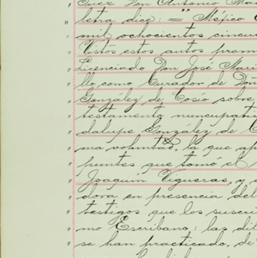 Juez Don Antonio Ma
letra dice: = "Méjico
mil ochocientos cincu
Vistos estos autos prom
Licenciado Don José Marí
llo como Curador de Dñ
González de Cosío sobre
testamento nuncupati
dalupe González de C
ma voluntad, la que a
puntes que tomó el
Joaquín Vigueras, y
dora en presencia del
testigos que los suscri
mo Escribano; las dil
se han practicado, de